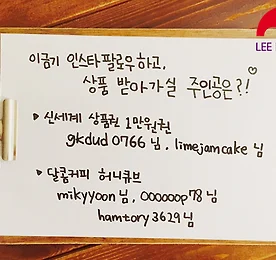 LEE
이금기 인스타 팔로우하고,
상품 받아가실 주인공은?!
▸ 신세계 상품권 1만원권
gkdud 0766 님, limejamcake 님
▸ 달콤커피 허니큐브
mikyyoon 님, oooooop78 님
hamtory3629 님